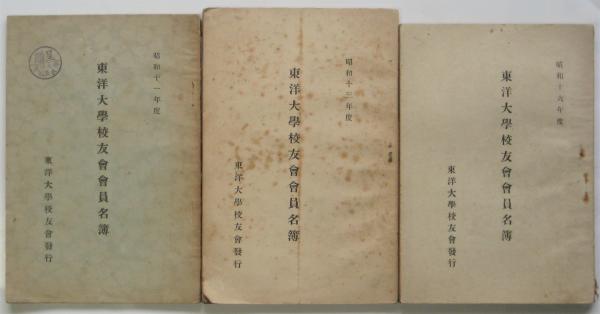 昭和十一年度
東洋大學校友會會員名簿
東洋大學校友會發行
昭和十三年度
東洋大學校友會會員名簿
東洋大學校友會發行
昭和十六年度
東洋大學校友會會員名簿
東洋大學校友會發行